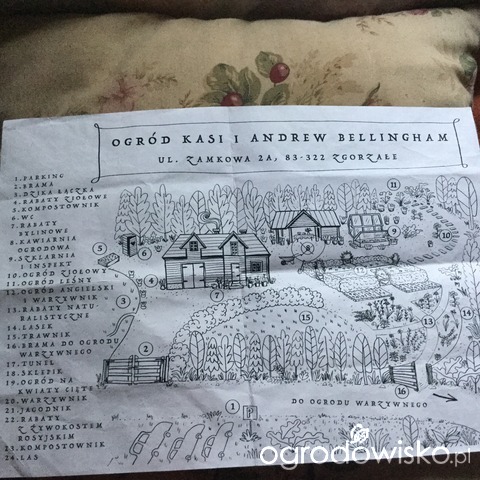 OGRÓD KASI I ANDREW BELLINGHAM
UL. ZAMKOWA 2A, 83-322 ZGORZAŁE
1. PARKING
2. BRAMA
3. DZIKA ŁĄCZKA
4. RABATY ZIOŁOWE
5. KOMPOSTOWNIK
6. WC
7. RABATY
BYLINOWE
8. KAWIARNIA
OGRODOWA
9. SZKLARNIA
I INSPEKT
10. OGRÓD ZIOŁOWY
11. OGRÓD LEŚNY
12. OGRÓD ANGIELSKI
I WARZYWNIK
13. RABATY NATU
RALISTYCZNE
14. LASEK
15. TRAWNIK
16. BRAMA DO OGRODU
WARZYWNEGO
17. TUNEL
18. SKLEPIK
19. OGRÓD NA
KWIATY CIĘTE
20. WARZYWNIK
21. JAGODNIK
22. RABATY
Z ŻYWOKOSTEM
ROSYJSKIM
23. KOMPOSTOWNIK
24. LAS
11
10
9
8
6
5
4
7
3
13
14
15
2
16
1
P
DO OGRODU WARZYWNEGO
ogrodowisko.pl